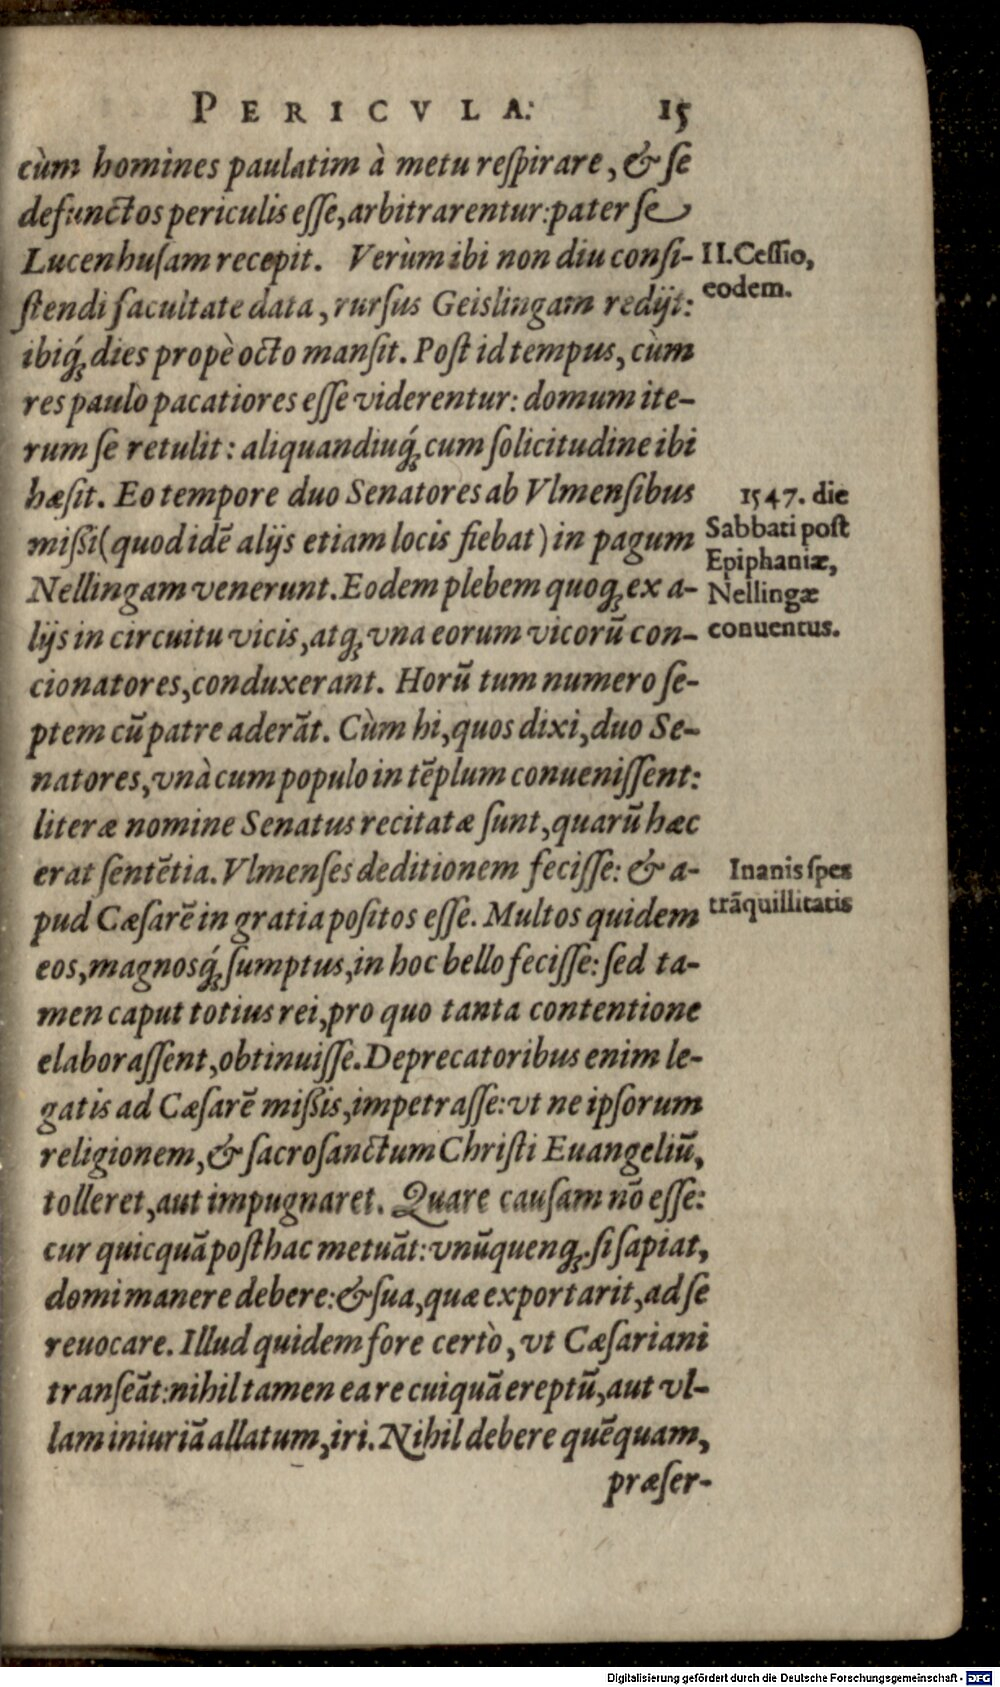 PERICVLA. 15
cùm homines paulatim à metu reſpirare, & ſe
defunctos periculis eſſe, arbitrarentur: pater ſe
Lucenhuſam recepit. Verùm ibi non diu conſi-
ſtendi facultate data, rurſus Geislingam redijt:
ibiq́ꝫ dies propè octo manſit. Poſt id tempus, cùm
res paulò pacatiores eſſe viderentur: domum ite-
rum ſe retulit: aliquandiuq́ꝫ cum ſolicitudine ibi
hæſit. Eo tempore duo Senatores ab Vlmenſibus
mißi (quod idē alijs etiam locis fiebat) in pagum
Nellingam venerunt. Eodem plebem quoqꝫ ex a-
lijs in circuitu vicis, atqꝫ vna eorum vicorū con-
cionatores, conduxerant. Horū tum numero ſe-
ptem cū patre aderāt. Cùm hi, quos dixi, duo Se-
natores, vnà cum populo in tēplum conueniſſent:
literæ nomine Senatus recitatæ ſunt, quarū hæc
erat ſentētia. Vlmenſes deditionem feciſſe: & a-
pud Cæſarē in gratia poſitos eſſe. Multos quidem
eos, magnosq́ꝫ ſumptus, in hoc bello feciſſe: ſed ta-
men caput totius rei, pro quo tanta contentione
elaboraſſent, obtinuiſſe. Deprecatoribus enim le-
gatis ad Cæſarē mißis, impetraſſe: vt ne ipſorum
religionem, & ſacroſanctum Chriſti Euangeliū,
tolleret, aut impugnaret. Quare cauſam nō eſſe:
cur quicquā poſthac metuāt: vnūquenqꝫ. ſi ſapiat,
domi manere debere: & ſua, quæ exportarit, ad ſe
reuocare. Illud quidem fore certò, vt Cæſariani
tranſeāt: nihil tamen ea re cuiquā ereptū, aut vl-
lam iniuriā allatum, iri. Nihil debere quēquam,
præſer-
II. Ceſſio,
eodem.
1547. die
Sabbati poſt
Epiphaniæ,
Nellingæ
conuentus.
Inanis ſpes
trāquillitatis
Digitalisierung gefördert durch die Deutsche Forschungsgemeinschaft - DFG